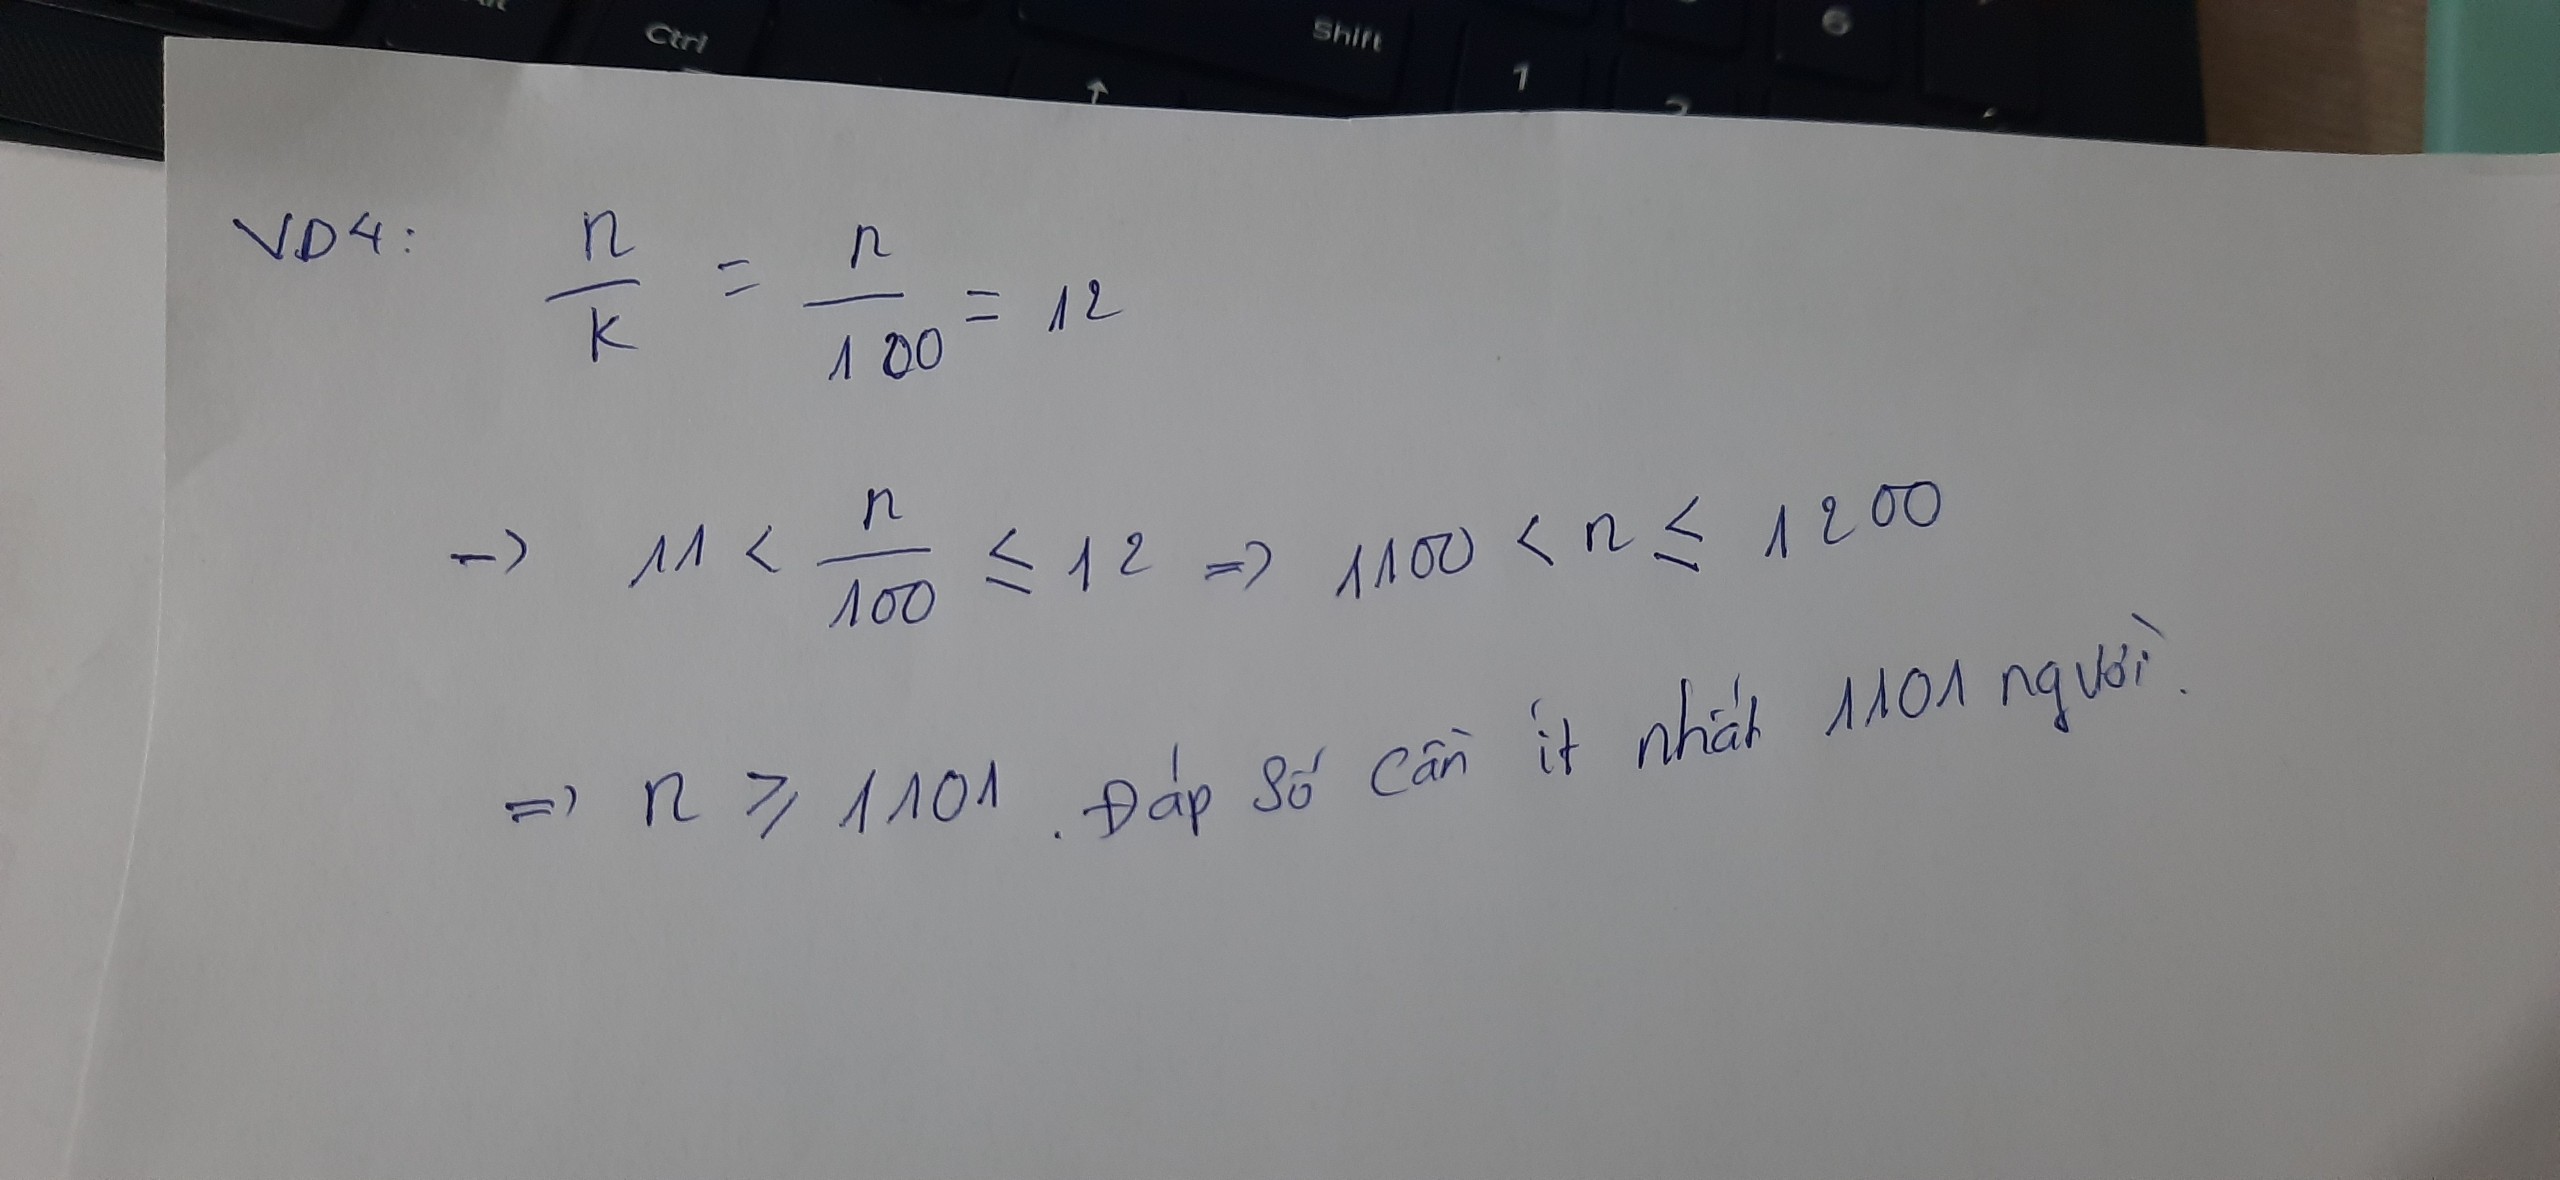 Ctrl
Shift
↑
1
6
VD4: n/k = n/100 = 12
=> 11 < n/100 ≤ 12 => 1100 < n ≤ 1200
=> n ≥ 1101. Đáp số cần ít nhất 1101 người.